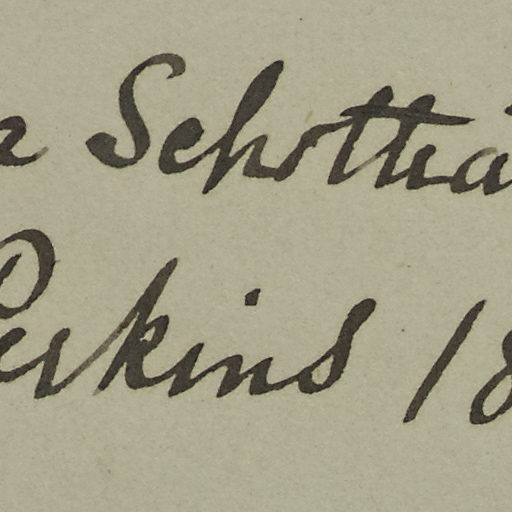 Schottiä
Perkins 18